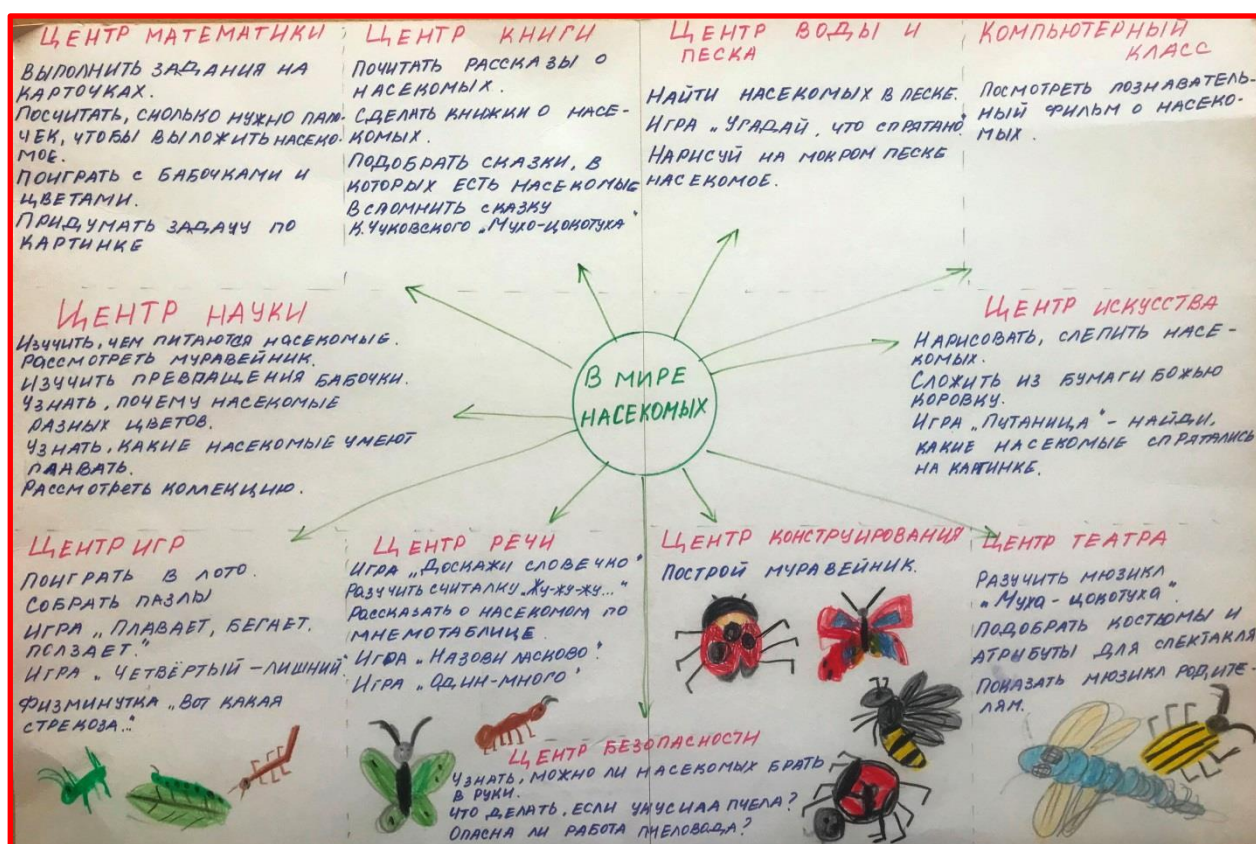 ЦЕНТР МАТЕМАТИКИ
ВЫПОЛНИТЬ ЗАДАНИЯ НА
КАРТОЧКАХ.
ПОСЧИТАТЬ, СКОЛЬКО НУЖНО ПАЛО-
ЧЕК, ЧТОБЫ ВЫЛОЖИТЬ НАСЕКО-
МОЕ.
ПОИГРАТЬ С БАБОЧКАМИ И
ЦВЕТАМИ.
ПРИДУМАТЬ ЗАДАЧУ ПО
КАРТИНКЕ
ЦЕНТР КНИГИ
ПОЧИТАТЬ РАССКАЗЫ О
НАСЕКОМЫХ.
СДЕЛАТЬ КНИЖКИ О НАСЕ-
КОМЫХ.
ПОДОБРАТЬ СКАЗКИ, В
КОТОРЫХ ЕСТЬ НАСЕКОМЫЕ
ВСПОМНИТЬ СКАЗКУ
К.ЧУКОВСКОГО „МУХО-ЦОКОТУХА"
ЦЕНТР ВОДЫ И
ПЕСКА
НАЙТИ НАСЕКОМЫХ В ПЕСКЕ.
ИГРА „УГАДАЙ, ЧТО СПРЯТАНО"
НАРИСУЙ НА МОКРОМ ПЕСКЕ
НАСЕКОМОЕ.
КОМПЬЮТЕРНЫЙ
КЛАСС
ПОСМОТРЕТЬ ПОЗНАВАТЕЛЬ-
НЫЙ ФИЛЬМ О НАСЕКО-
МЫХ.
ЦЕНТР НАУКИ
ИЗУЧИТЬ, ЧЕМ ПИТАЮТСЯ НАСЕКОМЫЕ.
РАССМОТРЕТЬ МУРАВЕЙНИК.
ИЗУЧИТЬ ПРЕВРАЩЕНИЯ БАБОЧКИ.
УЗНАТЬ, ПОЧЕМУ НАСЕКОМЫЕ
РАЗНЫХ ЦВЕТОВ.
УЗНАТЬ, КАКИЕ НАСЕКОМЫЕ УМЕЮТ
ПЛАВАТЬ.
РАССМОТРЕТЬ КОЛЛЕКЦИЮ.
В МИРЕ
НАСЕКОМЫХ
ЦЕНТР ИСКУССТВА
НАРИСОВАТЬ, СЛЕПИТЬ НАСЕ-
КОМЫХ.
СЛОЖИТЬ ИЗ БУМАГИ БОЖЬЮ
КОРОВКУ.
ИГРА „ПУТАНИЦА" - НАЙДИ,
КАКИЕ НАСЕКОМЫЕ СПРЯТАЛИСЬ
НА КАРТИНКЕ.
ЦЕНТР ИГР
ПОИГРАТЬ В ЛОТО.
СОБРАТЬ ПАЗЛЫ
ИГРА „ПЛАВАЕТ, БЕГАЕТ,
ПОЛЗАЕТ."
ИГРА „ЧЕТВЁРТЫЙ - ЛИШНИЙ"
ФИЗМИНУТКА „ВОТ КАКАЯ
СТРЕКОЗА."
ЦЕНТР РЕЧИ
ИГРА „ДОСКАЖИ СЛОВЕЧКО"
РАЗУЧИТЬ СЧИТАЛКУ „ЖУ-ЖУ-ЖУ..."
РАССКАЗАТЬ О НАСЕКОМОМ ПО
МНЕМОТАБЛИЦЕ.
ИГРА „НАЗОВИ ЛАСКОВО".
ИГРА „ОДИН-МНОГО"
ЦЕНТР КОНСТРУИРОВАНИЯ
ПОСТРОЙ МУРАВЕЙНИК.
ЦЕНТР ТЕАТРА
РАЗУЧИТЬ МЮЗИКЛ
„МУХА-ЦОКОТУХА".
ПОДОБРАТЬ КОСТЮМЫ И
АТРИБУТЫ ДЛЯ СПЕКТАКЛЯ
ПОКАЗАТЬ МЮЗИКЛ РОДИТЕ-
ЛЯМ.
ЦЕНТР БЕЗОПАСНОСТИ
УЗНАТЬ, МОЖНО ЛИ НАСЕКОМЫХ БРАТЬ
В РУКИ.
ЧТО ДЕЛАТЬ, ЕСЛИ УКУСИЛА ПЧЕЛА?
ОПАСНА ЛИ РАБОТА ПЧЕЛОВОДА?